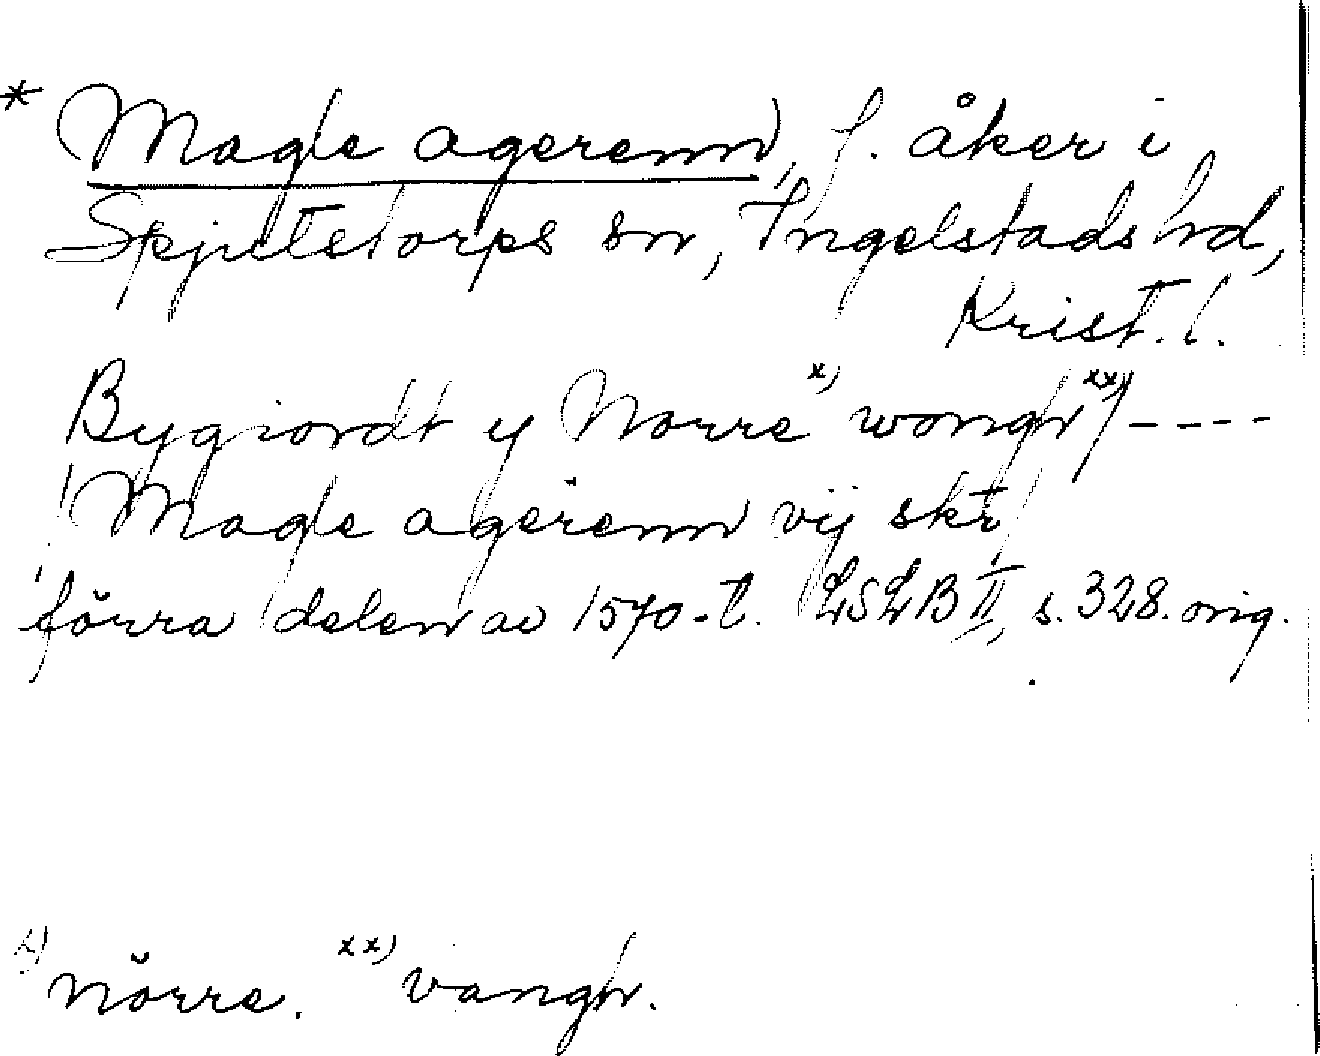 * Magle agerenn, f. åker i
Spjutetorps sn, Ingelstads hd,
Krist. l.
Bygiordt y Norre x) wongh xx) ----
Magle agerenn vij skr
förra delen av 1570-t. LSLB II, s. 328. orig.
x) nörre. xx) vangh.